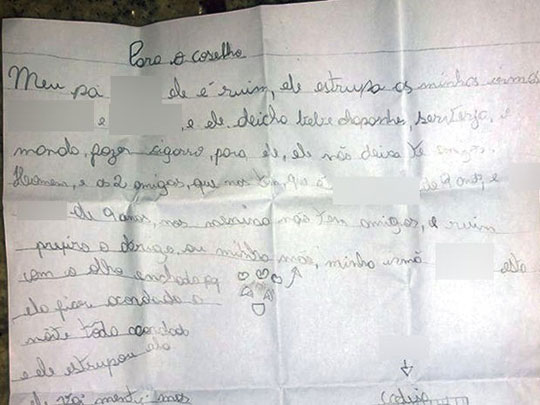 Para o coselho
Meu pa ele é ruim, ele estrupa as minhas irmas
e , e ele deicha bebe chapanhe, serveja, e
manda, fazer sigarro, para ele, ele não deixa te amigos.
Homem, e as 2 amigas, que nos tem, de 9 anos, e
de 9 anos, nos meninas não tem amigos, é ruim
prefiro a ou minha mãe, minha irmã esta
com o olho enchado pq
ela ficou acordada a
noite toda acordado
e ele estrupou ela
ele vai menti